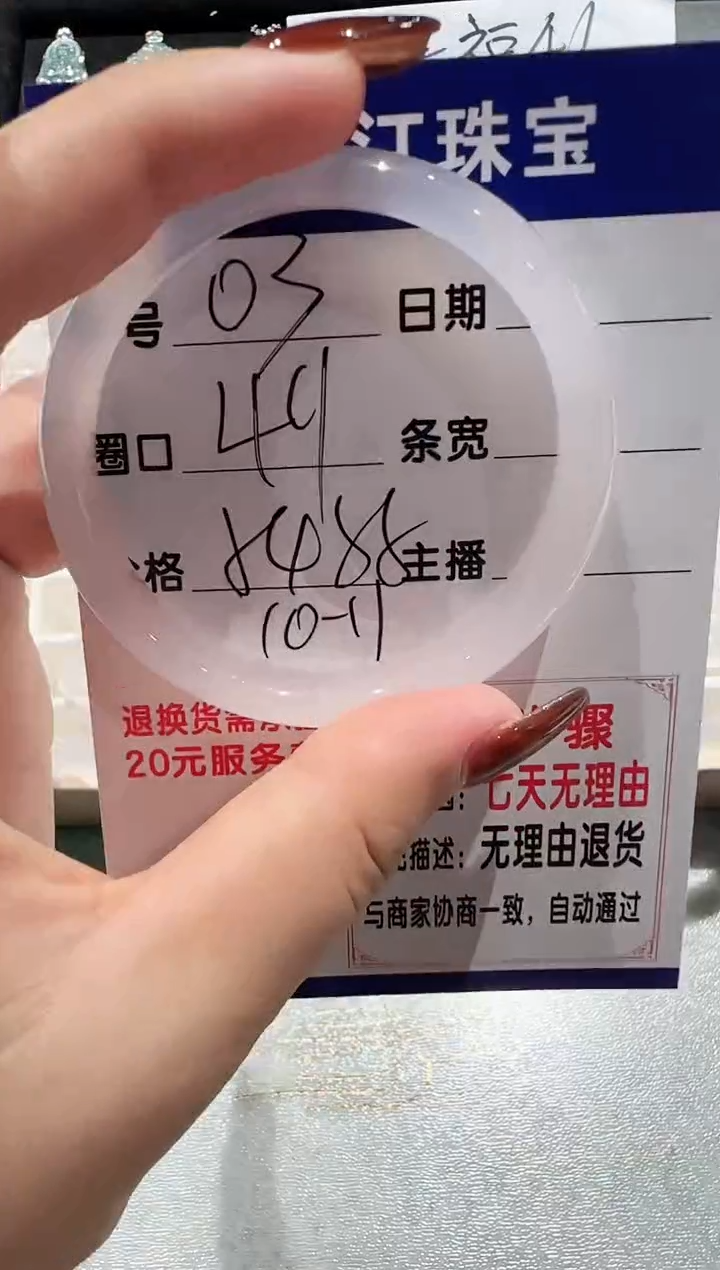 江珠宝
号 03 日期
圈口 49 条宽
格 8488 主播
10-11
退换货需
20元服务
骤
七天无理由
描述：无理由退货
与商家协商一致，自动通过